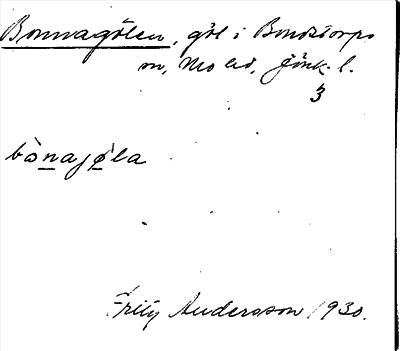 Bonnagölen, göl i Bondstorps
sn, Mo hd, Jönk. l.
3
bònajø̀la
Frity Andersson 1930.